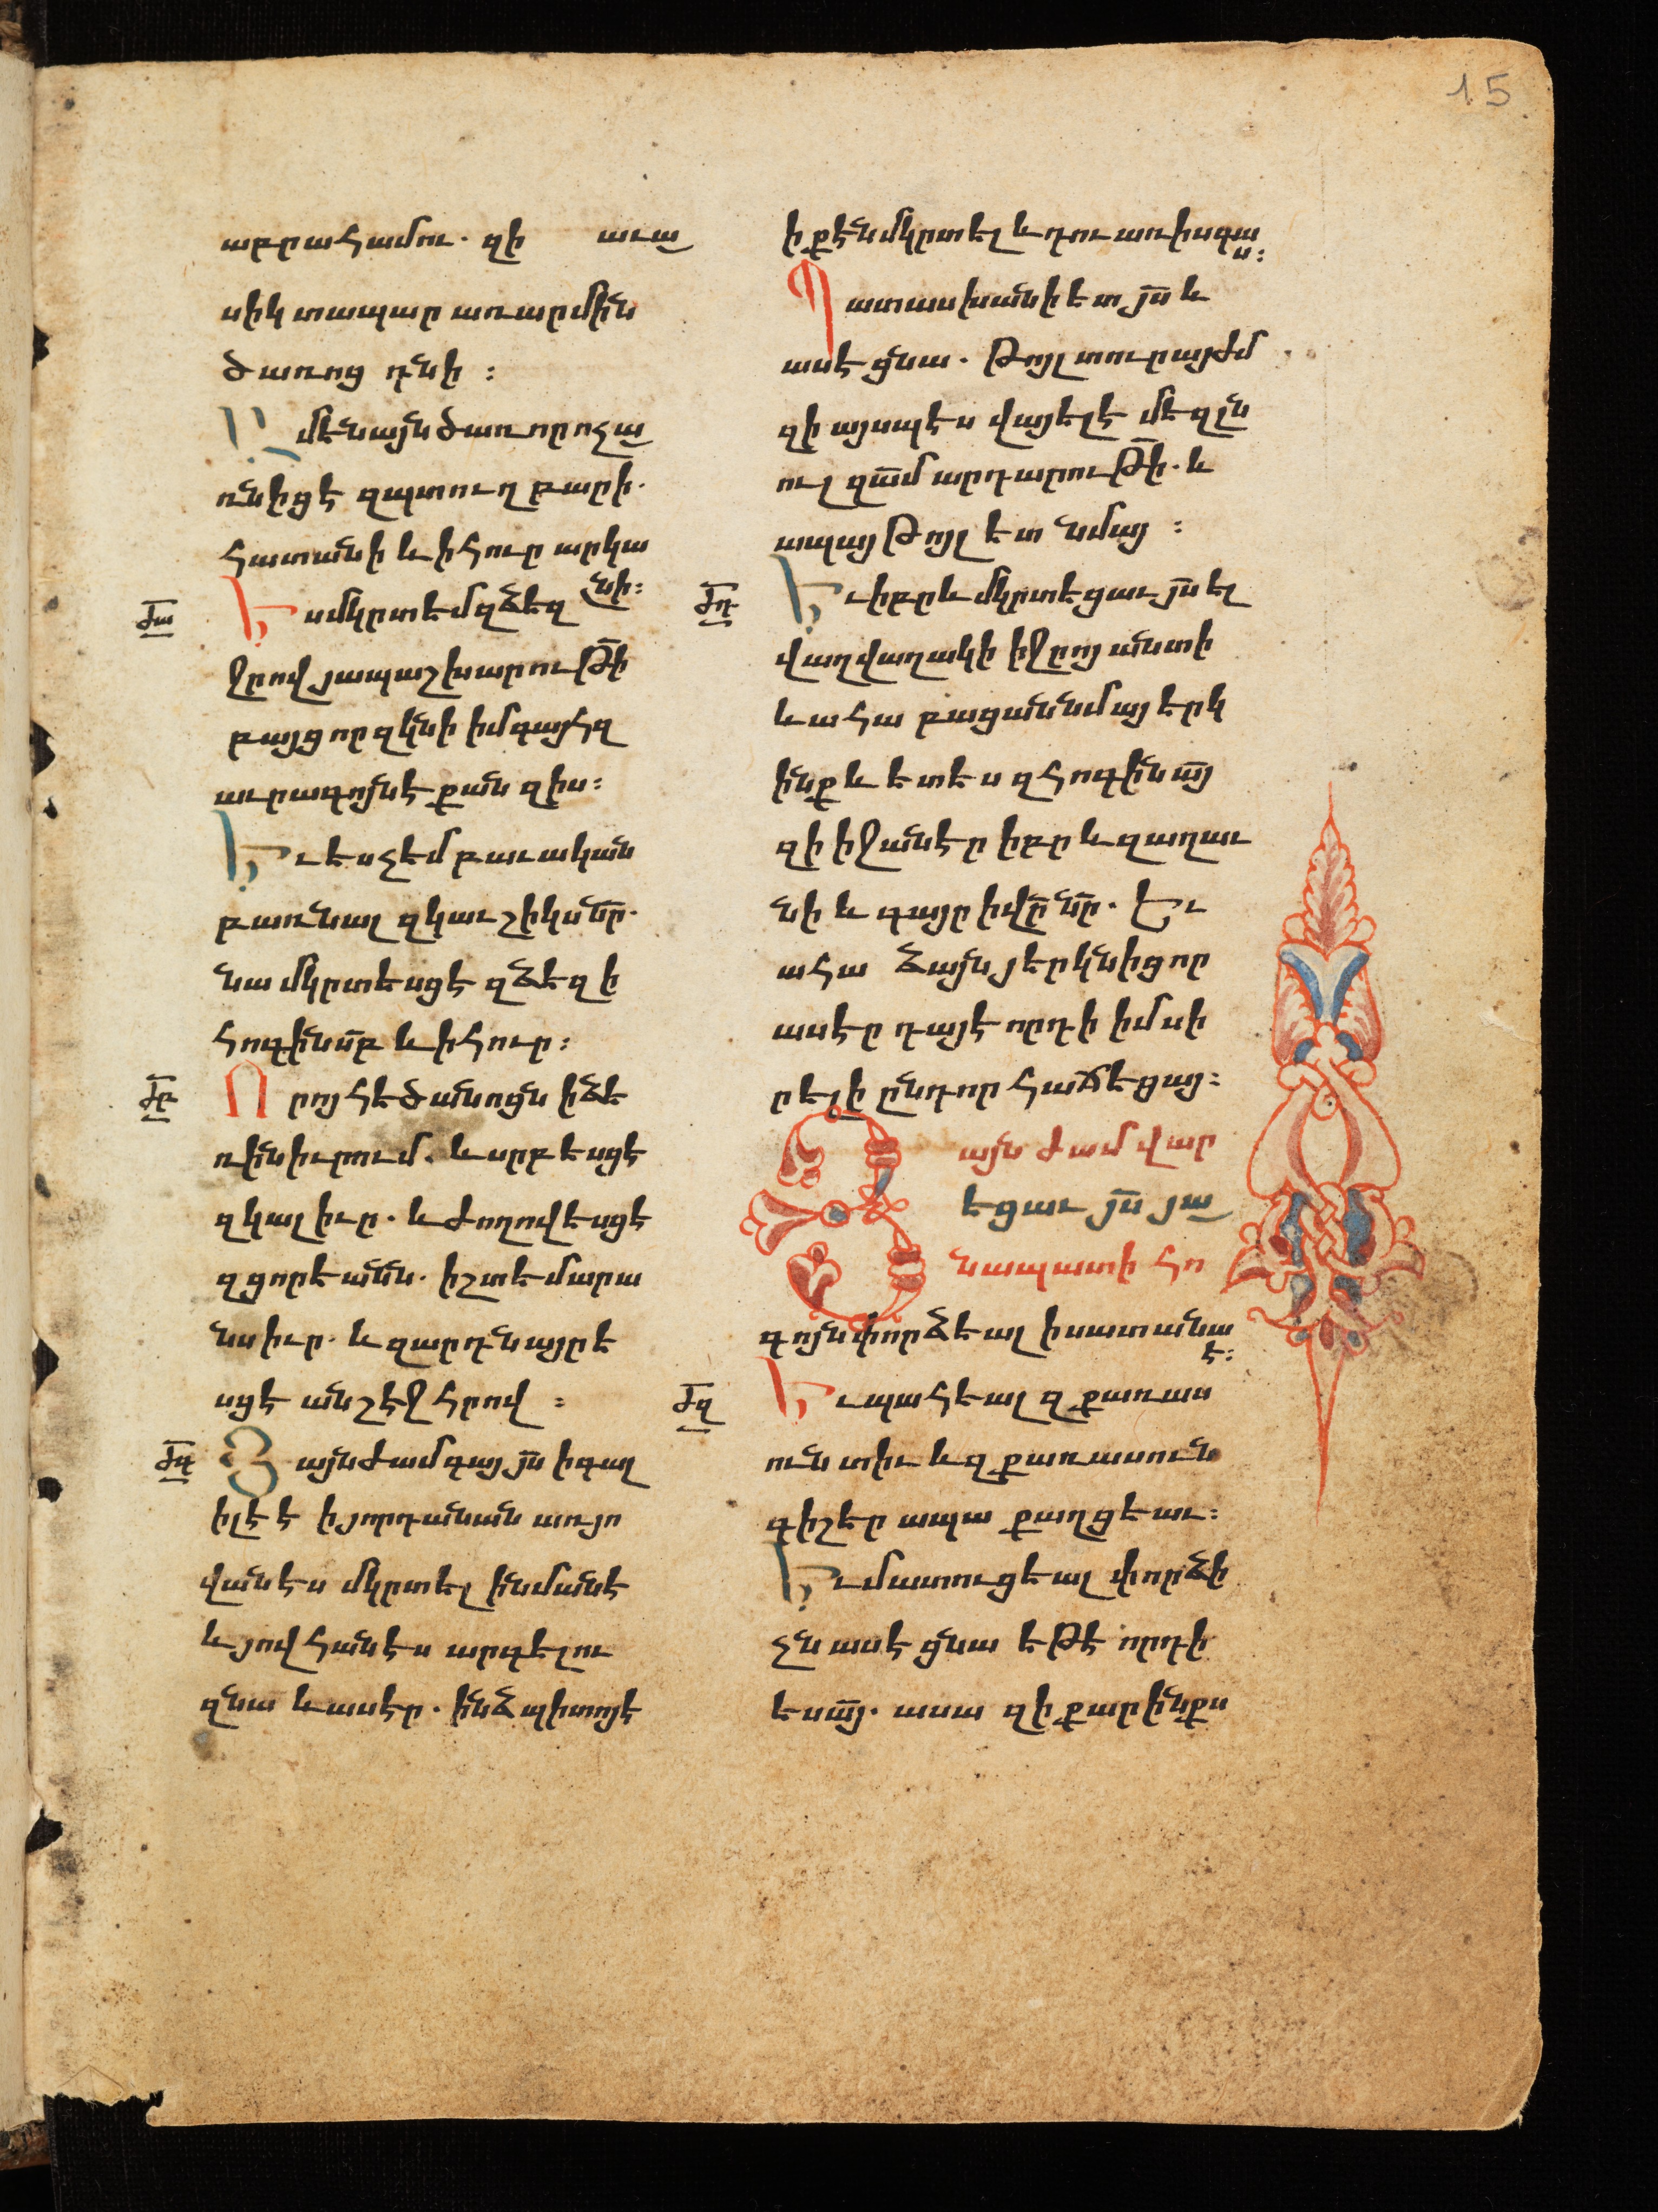 15
աբրահամու. զի աւա
սիկ տապար առ արմին
ծառոց դնի :
Ամենայն ծառ որ ոչ ա
ռնիցէ զպտուղ բարի.
հատանի և ի հուր արկա
նի:
ԺԱ Ես մկրտեմ զձեզ
ջրով յապաշխարութի
բայց որ զկնի իմ գայ հզ
աւրագոյն է քան զիս:
Եւ ես չեմ բաւական
բառնալ զկաւշիկս նր.
նա մկրտեսցէ զձեզ ի
հոգին սբ և ի հուր:
ԺԲ Որոյ հեծանոցն ի ձե
ռին իւրում. և սրբեսցէ
զկալ իւր. և ժողովեսցէ
զցորեանն. ի շտեմարա
նս իւր. և զյարդն այրե
սցէ անշէջ հրով :
ԺԳ Յայնժամ գայ յս ի գաղ
իլէէ ի յորդանան առ յո
վանէս մկրտել ի նմանէ
և յովհանէս արգելու
զնա և ասէր. ինձ պիտոյ է
ի քէն մկրտել և դու առ իս գա
ս:
Պատասխանի ետ յս և
ասէ ցնա. Թոյլ տուր այժմ
զի այսպէս վայել է մեզ լն
ուլ զամ արդարութի. և
ապայ թոյլ ետ նմայ :
ԺԴ Եւ իբրև մկրտեցաւ յս ել
վաղվաղակի ի ջրոյ անտի
և ահա բացան նմայ երկ
ինք և ետես զհոգին այ
զի իջանէր իբրև զաղաւ
նի և գայր ի վր նր. Եւ
ահա ձայն յերկնից որ
ասէր դայ է որդի իմ սի
րելի ընդ որ հաճեցայ:
Յայնժամ վար
եցաւ յս յա
նապատ ի հո
գոյն փորձեալ ի սատանա
է:
ԺԶ Եւ պահեալ զքառաս
ուն տիւ և զքառասուն
գիշեր ապա քաղցեաւ:
Եւ մատուցեալ փորձի
չն ասէ ցնա եթէ որդի
ես այ. ասա զի քարինքս